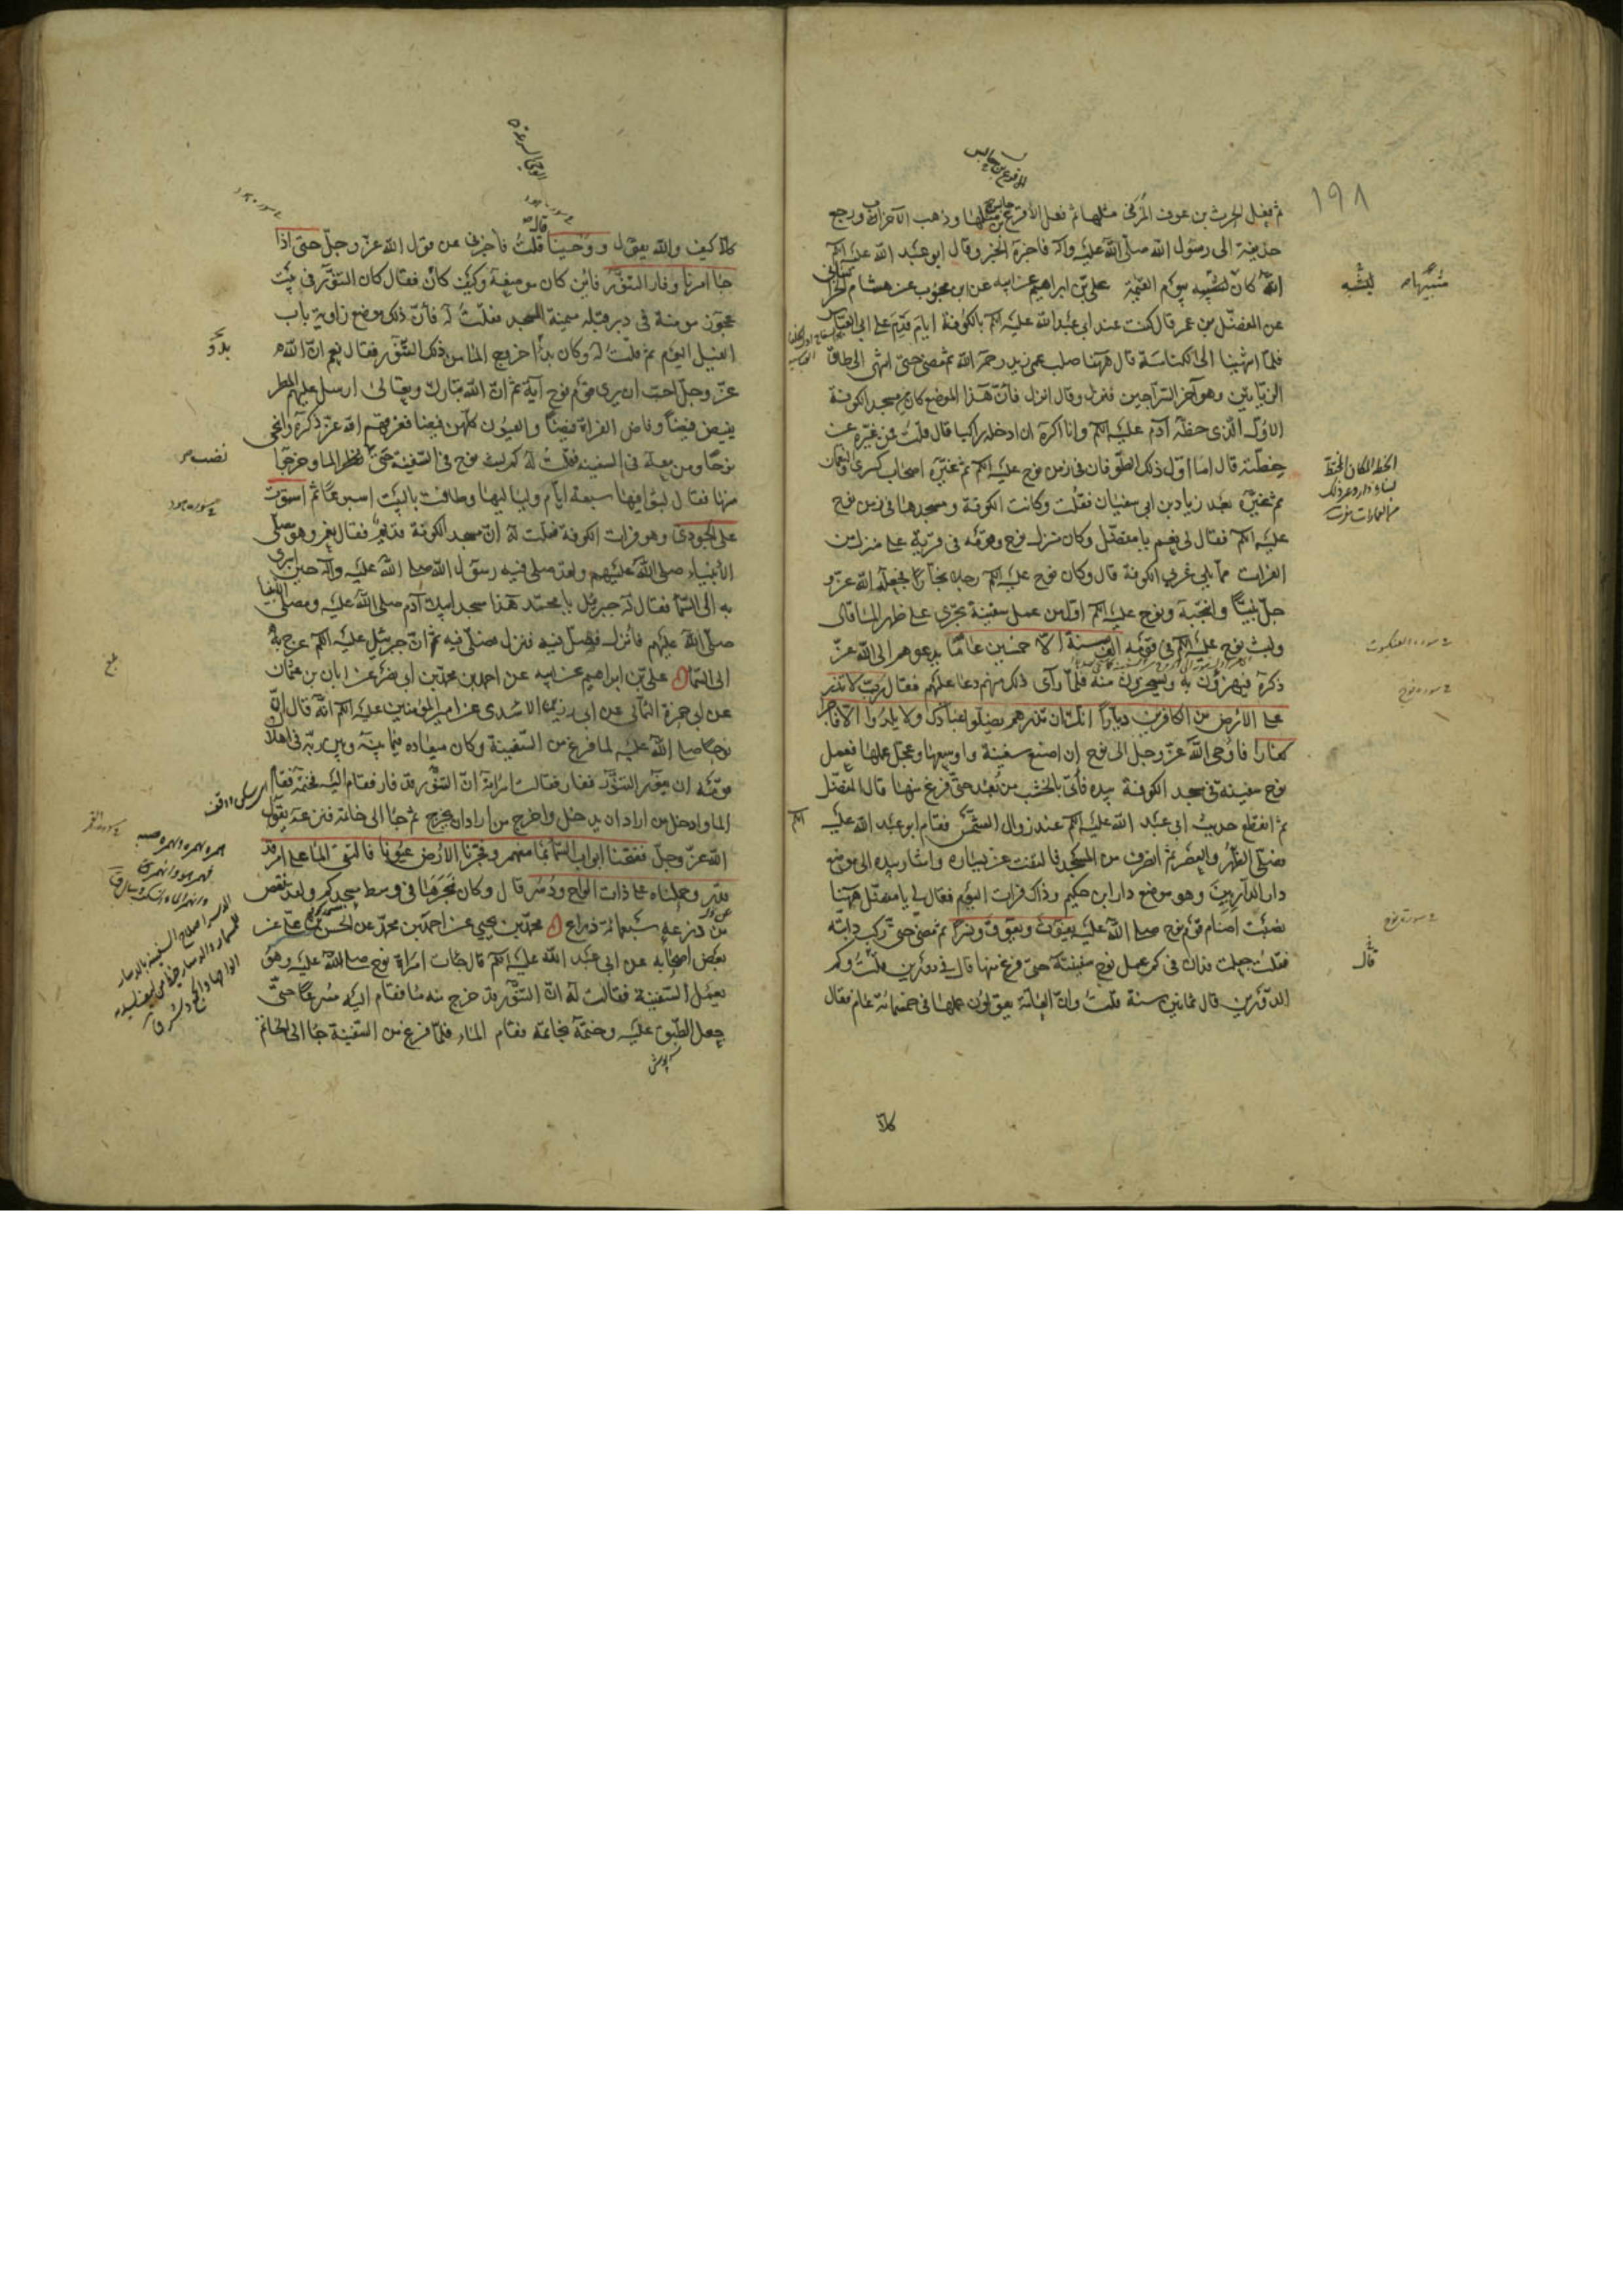 ١٩٨
ثم فعل الحرث بن عوف المزني مثلها ثم فعل الأقرع بن حابس مثلها وذهب الأحزاب ورجع
حذيفة الى رسول الله صلى الله عليه وآله فاخبره الخبر وقال ابو عبد الله عليه السلم
انه كان ليشبه يوم القيمة علي بن ابراهيم عن ابيه عن ابن محبوب عن هشام الخراساني
عن المفضل بن عمر قال كنت عند ابي عبد الله عليه السلم بالكوفة ايام قدم على ابي العباس
فلما انتهينا الى الكناسة قال ههنا صلب عمي زيد رحمه الله ثم مضى حتى انتهى الى طاق
الزياتين وهو آخر السراجين فنزل وقال انزل فان هذا الموضع كان مسجد الكوفة
الاول الذي خطه آدم عليه السلم وانا اكره ان ادخله راكبا قال قلت فمن غيره عن
خطته قال اما اول ذلك الطوفان في زمن نوح عليه السلم ثم غيره اصحاب كسرى والنعمان
ثم غيره بعد زياد بن ابي سفيان فقلت وكانت الكوفة ومسجدها في زمن نوح
عليه السلم فقال لي نعم يا مفضل وكان منزل نوح وقومه في قرية على منزل من
الفرات مما يلي غربي الكوفة قال وكان نوح عليه السلم رجلا نجارا فجعله الله عز و
جل نبيا وانتجبه ونوح عليه السلم اول من عمل سفينة تجري على ظهر الماء قال
ولبث نوح عليه السلم في قومه الف سنة الا خمسين عاما يدعوهم الى الله عز
ذكره فيهزؤن به ويسخرون منه فلما رأى ذلك منهم دعا عليهم فقال رب لا تذر
على الأرض من الكافرين ديارا انك ان تذرهم يضلوا عبادك ولا يلدوا الا فاجرا
كفارا فاوحى الله عز وجل الى نوح ان اصنع سفينة واوسعها وعجل عملها فعمل
نوح سفينة في مسجد الكوفة بيده فأتى بالخشب من بعد حتى فرغ منها قال المفضل
ثم انقطع حديث ابي عبد الله عليه السلم عند زوال الشمس فقام ابو عبد الله عليه السلم
فصلى الظهر والعصر ثم انصرف من المسجد فالتفت عن يساره واشار بيده الى موضع
دار الداريين وهو موضع دار ابن حكيم وذاك فرات اليوم فقال لي يا مفضل ههنا
نصبت اصنام قوم نوح صلى الله عليه يغوث ويعوق ونسرا ثم مضى حتى ركب دابته
فقلت جعلت فداك في كم عمل نوح سفينته حتى فرغ منها قال في دورين قلت وكم
الدورين قال ثمانين سنة قلت وان العامة يقولون عملها في خمسمائة عام فقال
كلا
شبيهاً
ليشبه
في سورة العنكبوت
في سورة نوح
في سورة نوح
قال
كلا كيف والله يقول ووحينا قال قلت فأخبرني عن قول الله عز وجل حتى اذا
جاء امرنا وفار التنور فأين كان موضعه وكيف كان فقال كان التنور في بيت
عجوز مومنة في دبر قبلة ميمنة المسجد فقلت له فان ذلك موضع زاوية باب
الفيل اليوم ثم قلت له وكان بدأ خروج الماء من ذلك التنور فقال نعم ان الله
عز وجل احب ان يرى قوم نوح آية ثم ان الله تبارك وتعالى ارسل عليهم المطر
يفيض فيضا وفاض الفرات فيضا والعيون كلهن فيضا فغرقهم الله عز ذكره وانجى
نوحا ومن معه في السفينة فقلت له كم لبث نوح في السفينة حتى نضب الماء وخرجوا
منها فقال لبثوا فيها سبعة ايام ولياليها وطافت بالبيت اسبوعا ثم استوت
على الجودي وهو فرات الكوفة فقلت له ان مسجد الكوفة قديم فقال نعم وهو مصلى
الأنبياء صلى الله عليهم ولقد صلى فيه رسول الله صلى الله عليه وآله حين اسرى
به الى السماء فقال له جبرئيل يا محمد هذا مسجد ابيك آدم صلى الله عليه ومصلى الانبياء
صلى الله عليهم فانزل فصل فيه فنزل فصلى فيه ثم ان جبرئيل عليه السلم عرج به
الى السماء علي بن ابراهيم عن ابيه عن احمد بن محمد بن ابي نصر عن ابان بن عثمان
عن ابي حمزة الثمالي عن ابي رزين الاسدي عن امير المؤمنين عليه السلم انه قال ان
نوحا صلى الله عليه لما فرغ من السفينة وكان ميعاده فيما بينه وبين ربه في اهلاك
قومه ان يفور التنور ففار فقالت امراته ان التنور قد فار فقام اليه فختمه فقام
الماء وادخل من اراد ان يدخل واخرج من اراد ان يخرج ثم جاء الى خاتمه فنزعه يقول
الله عز وجل ففتحنا ابواب السماء بماء منهمر وفجرنا الأرض عيونا فالتقى الماء على امر قد
قدر وحملناه على ذات الواح ودسر قال وكان نجرها في وسط مسجدكم ولقد نقص
من ذرعه سبعمائة ذراع محمد بن يحيى عن احمد بن محمد عن الحسن بن علي عن
بعض اصحابه عن ابي عبد الله عليه السلم قال جاءت امراة نوح صلى الله عليه وهو
يعمل السفينة فقالت له ان التنور قد خرج منه ماء فقام اليه مسرعا حتى
جعل الطبق عليه وختمه بخاتمه فقام الماء فلما فرغ من السفينة جاء الى الخاتم
بدو
نضب
في سورة هود
بلغ
في سورة القمر